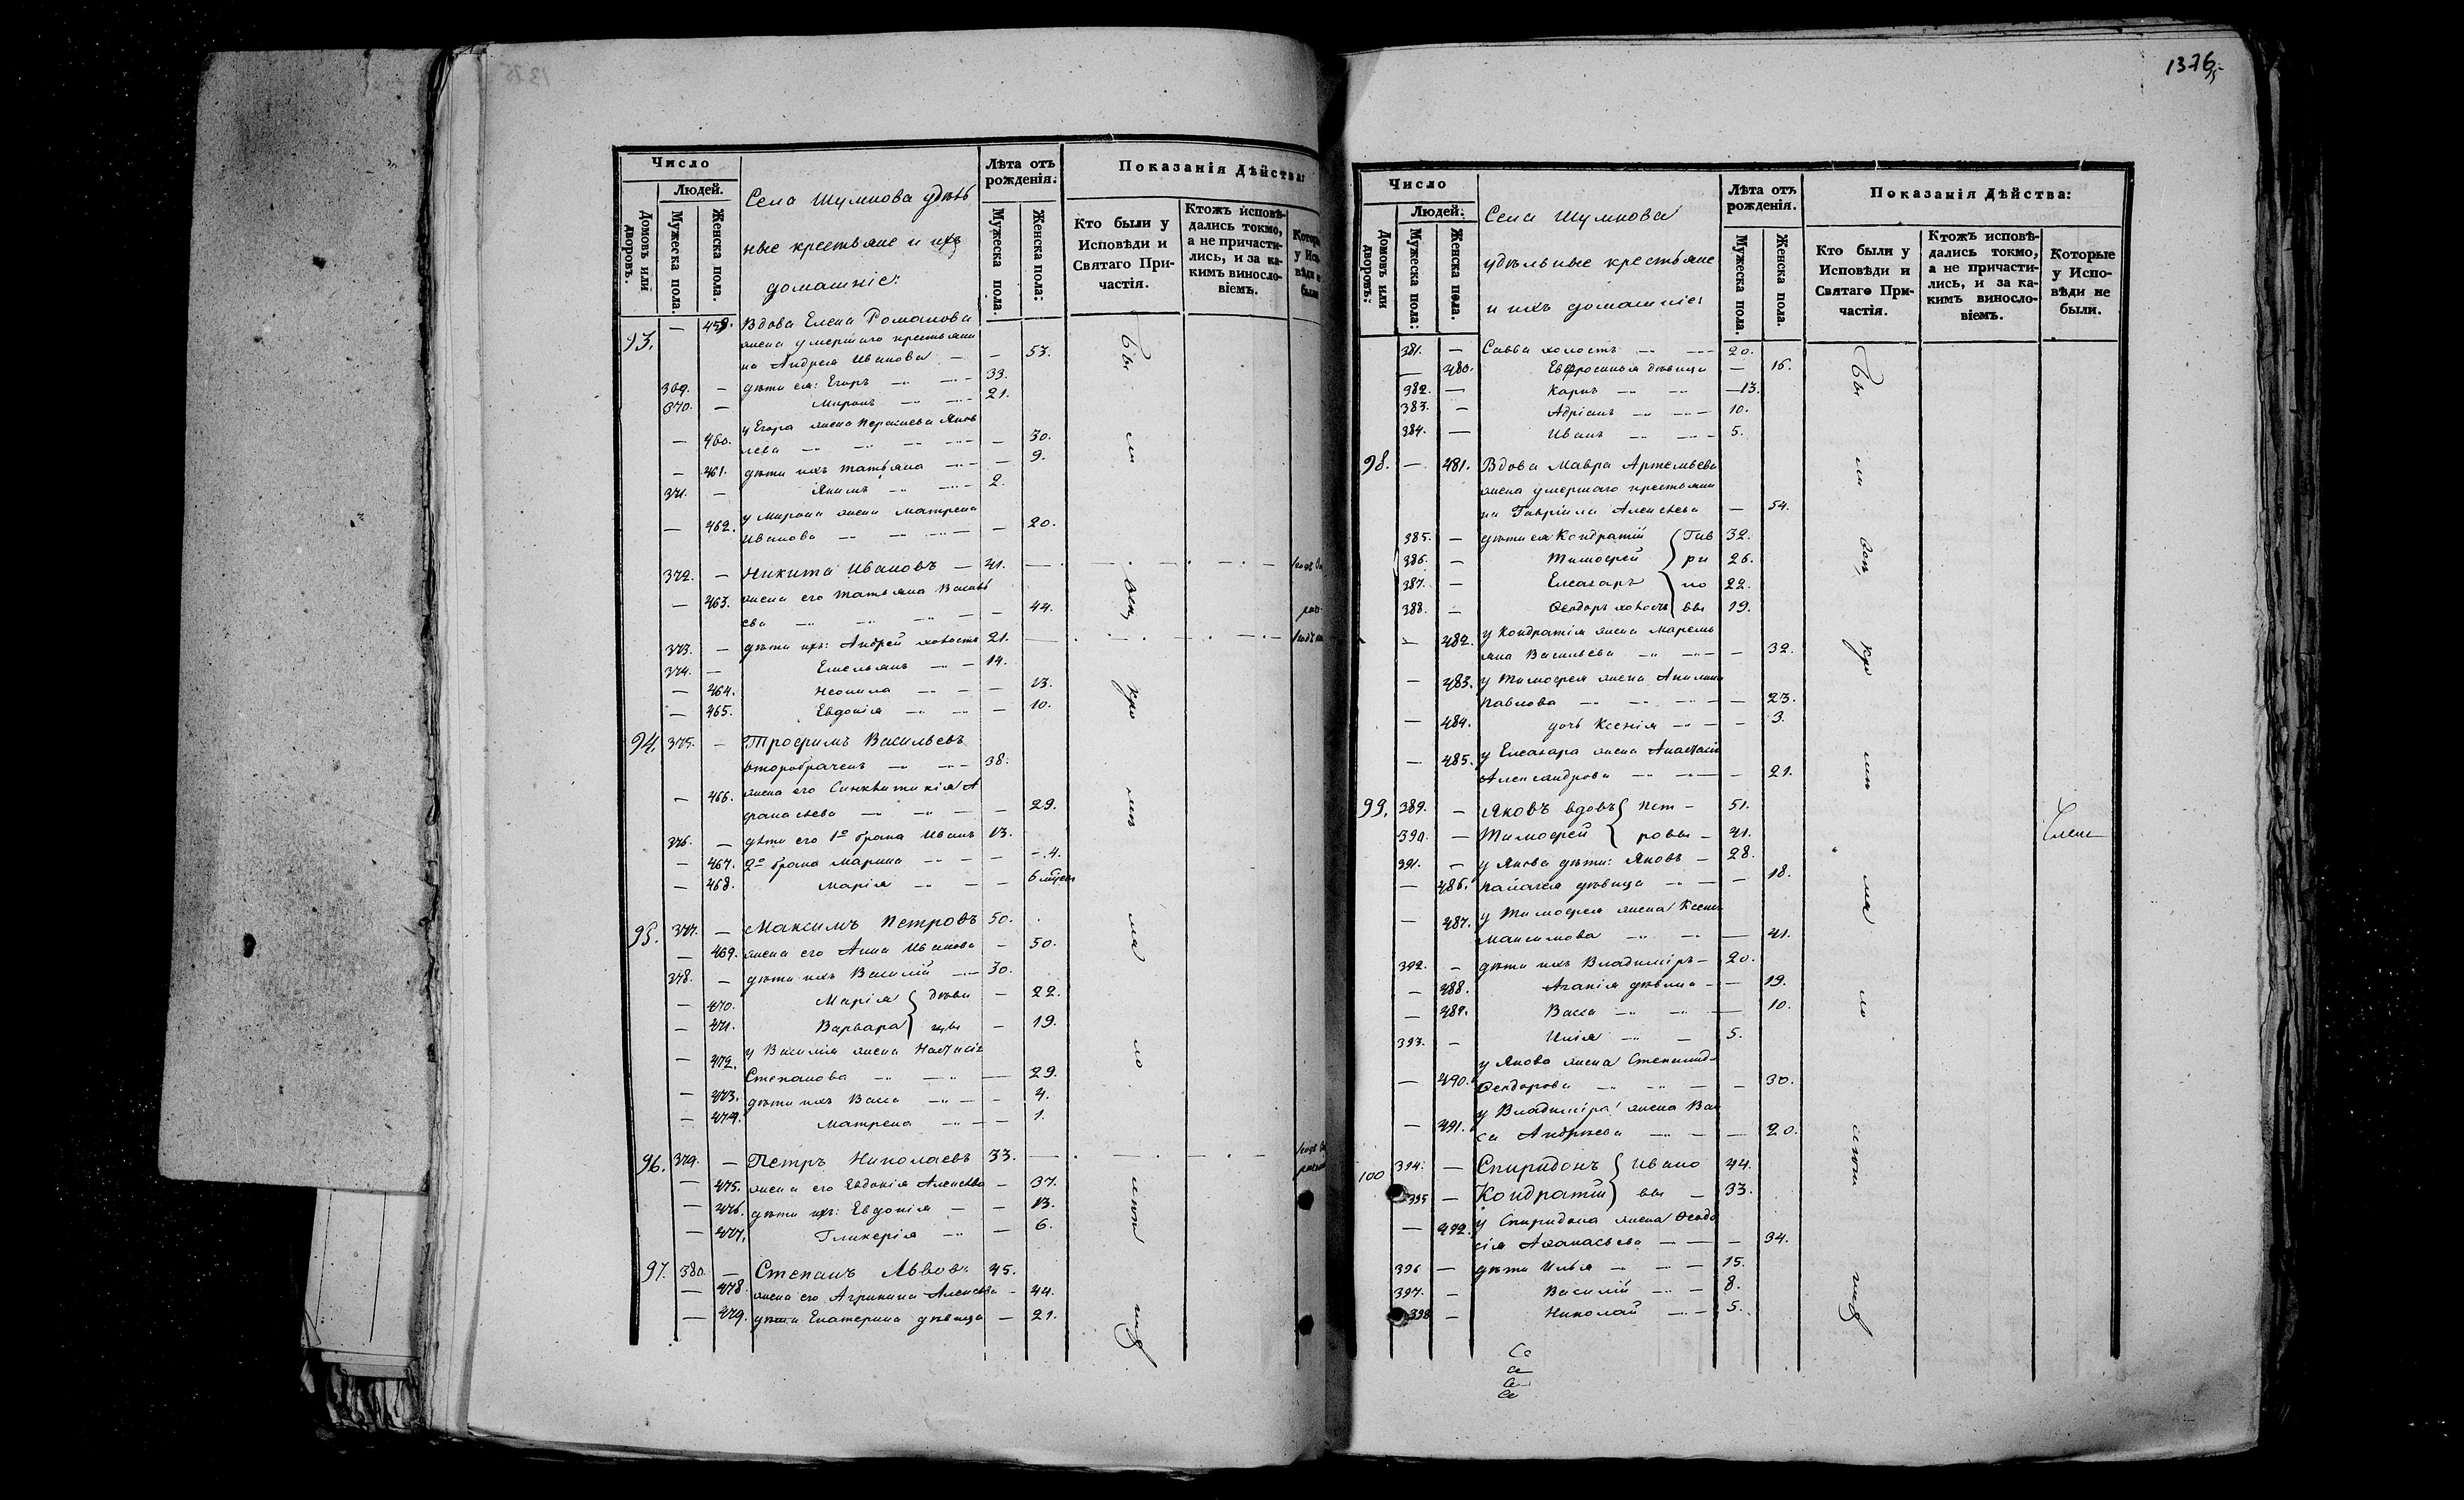 Число
Людей.
Домовъ или дворовъ.
Мужеска пола.
Женска пола.
Села Шумкова удѣль
ные крестьяне и ихъ
домашніе:
Лѣта отъ рожденія:
Мужеска пола.
Женска пола:
Показанія Дѣйства:
Кто были у Исповѣди и Святаго Причастія.
Ктожъ исповѣдались токмо, а не причастились, и за какимъ винословіемъ.
93. — 459. Вдова Елена Романова
жена умершаго крестьяни
на Андрея Иванова — — 53.
369. — дѣти ея: Егоръ — 33.
370. — Миронъ — 21.
у Егора жена Перасчева Яков
— 460. лева — — 30.
— 461. дѣти ихъ Татьяна — — 9.
371. — Якимъ — 2.
у Мирона жена Матрена
— 462. Иванова — — 20.
372. — Никита Ивановъ — 41.
— 463. жена его Татьяна Василь
ева — — 44.
373. — дѣти ихъ: Андрей холостъ 21.
374. — Емельянъ — 14.
— 464. Неонила — — 13.
— 465. Евдокія — — 10.
94. 375. — Трофимъ Васильевъ
второбраченъ — 38.
— 466. жена его Синклитикія А
фанасьева — — 29.
376. — дѣти его 1го брака Иванъ 13.
— 467. 2го брака Марина — — 4.
— 468. Марія — — 6 мѣсец
95. 377. — Максимъ Петровъ 50.
— 469. жена его Анна Иванова — 50.
378. — дѣти ихъ Василій — 30.
— 470. Марія } дѣви — 22.
— 471. Варвара } цы — 19.
— 472. у Василія жена Настасія
Степанова — — 29.
— 473. дѣти ихъ Васса — — 4.
— 474. Матрена — — 1.
96. 379. — Петръ Николаевъ 33.
— 475. жена его Евдокія Алексѣева — 37.
— 476. дѣти ихъ: Евдокія — — 13.
— 477. Гликерія — — 6.
97. 380. — Степанъ Львовъ 45.
— 478. жена его Агрипина Алексѣева — 44.
— 479. дѣти Екатерина дѣвица — 21.
1376
Число
Людей:
Домовъ или дворовъ:
Мужеска пола:
Женска пола.
Села Шумкова
удѣльные крестьяне
и ихъ домашніе
Лѣта отъ рожденія.
Мужеска пола.
Женска пола.
Показанія Дѣйства:
Кто были у Исповѣди и Святаго Причастія.
Ктожъ исповѣдались токмо, а не причастились, и за какимъ винословіемъ.
Которые у Исповѣди не были.
381. — Савва холостъ — 20.
— 480. Евфросинія дѣвица — 16.
382. — Карпъ — 13.
383. — Адріанъ — 10.
384. — Иванъ — 5.
98. — 481. Вдова Мавра Артемьева
жена умершаго крестьяни
на Гавріила Алексѣева — 54.
385. — дѣти ея Кондратій { Гав 32.
386. — Тимофей { ри 26.
387. — Елеазаръ { ло 22.
388. — Ѳеодоръ холостъ { вы 19.
— 482. у Кондратія жена Маремь
яна Васильева — — 32.
— 483. у Тимофея жена Акилина
Павлова — — 23.
— 484. дочь Ксенія — — 3.
— 485. у Елеазара жена Анастасія
Александрова — — 21.
99. 389. — Яковъ вдовъ { Пет — 51.
390. — Тимофей { ровы — 41.
391. — у Якова дѣти: Яковъ — 28.
— 486. Палагея дѣвица — — 18.
— 487. у Тимофея жена Ксенія
Максимова — — 41.
392. — дѣти ихъ Владиміръ — 20.
— 488. Агапія дѣвица — — 19.
— 489. Васса — — 10.
393. — Илія — 5.
у Якова жена Степанид
— 490. Ѳеодорова — — 30.
у Владиміра жена Вас
— 491. са Андреева — — 20.
100 394. — Спиридонъ { Ивано 44.
395 — Кондратій } вы — 33.
— 492. у Спиридона жена Ѳеодо
сія Аѳанасьева — — 34.
396 — дѣти Илья — 15.
397. — Василій — 8.
398 — Николай — 5.